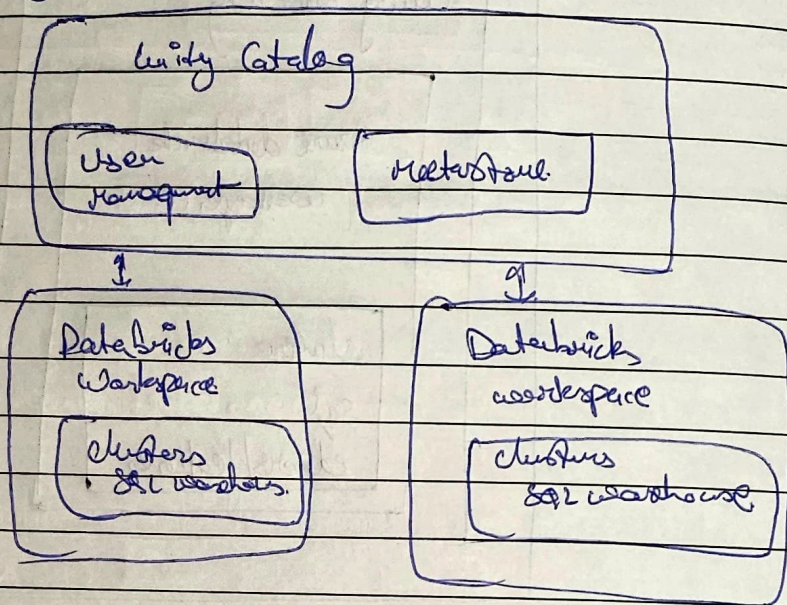 Unity Catalog
User
Managment
Metastore
Databricks
Workspace
clusters
SQL warehouse
Databricks
workspace
clusters
SQL warehouse